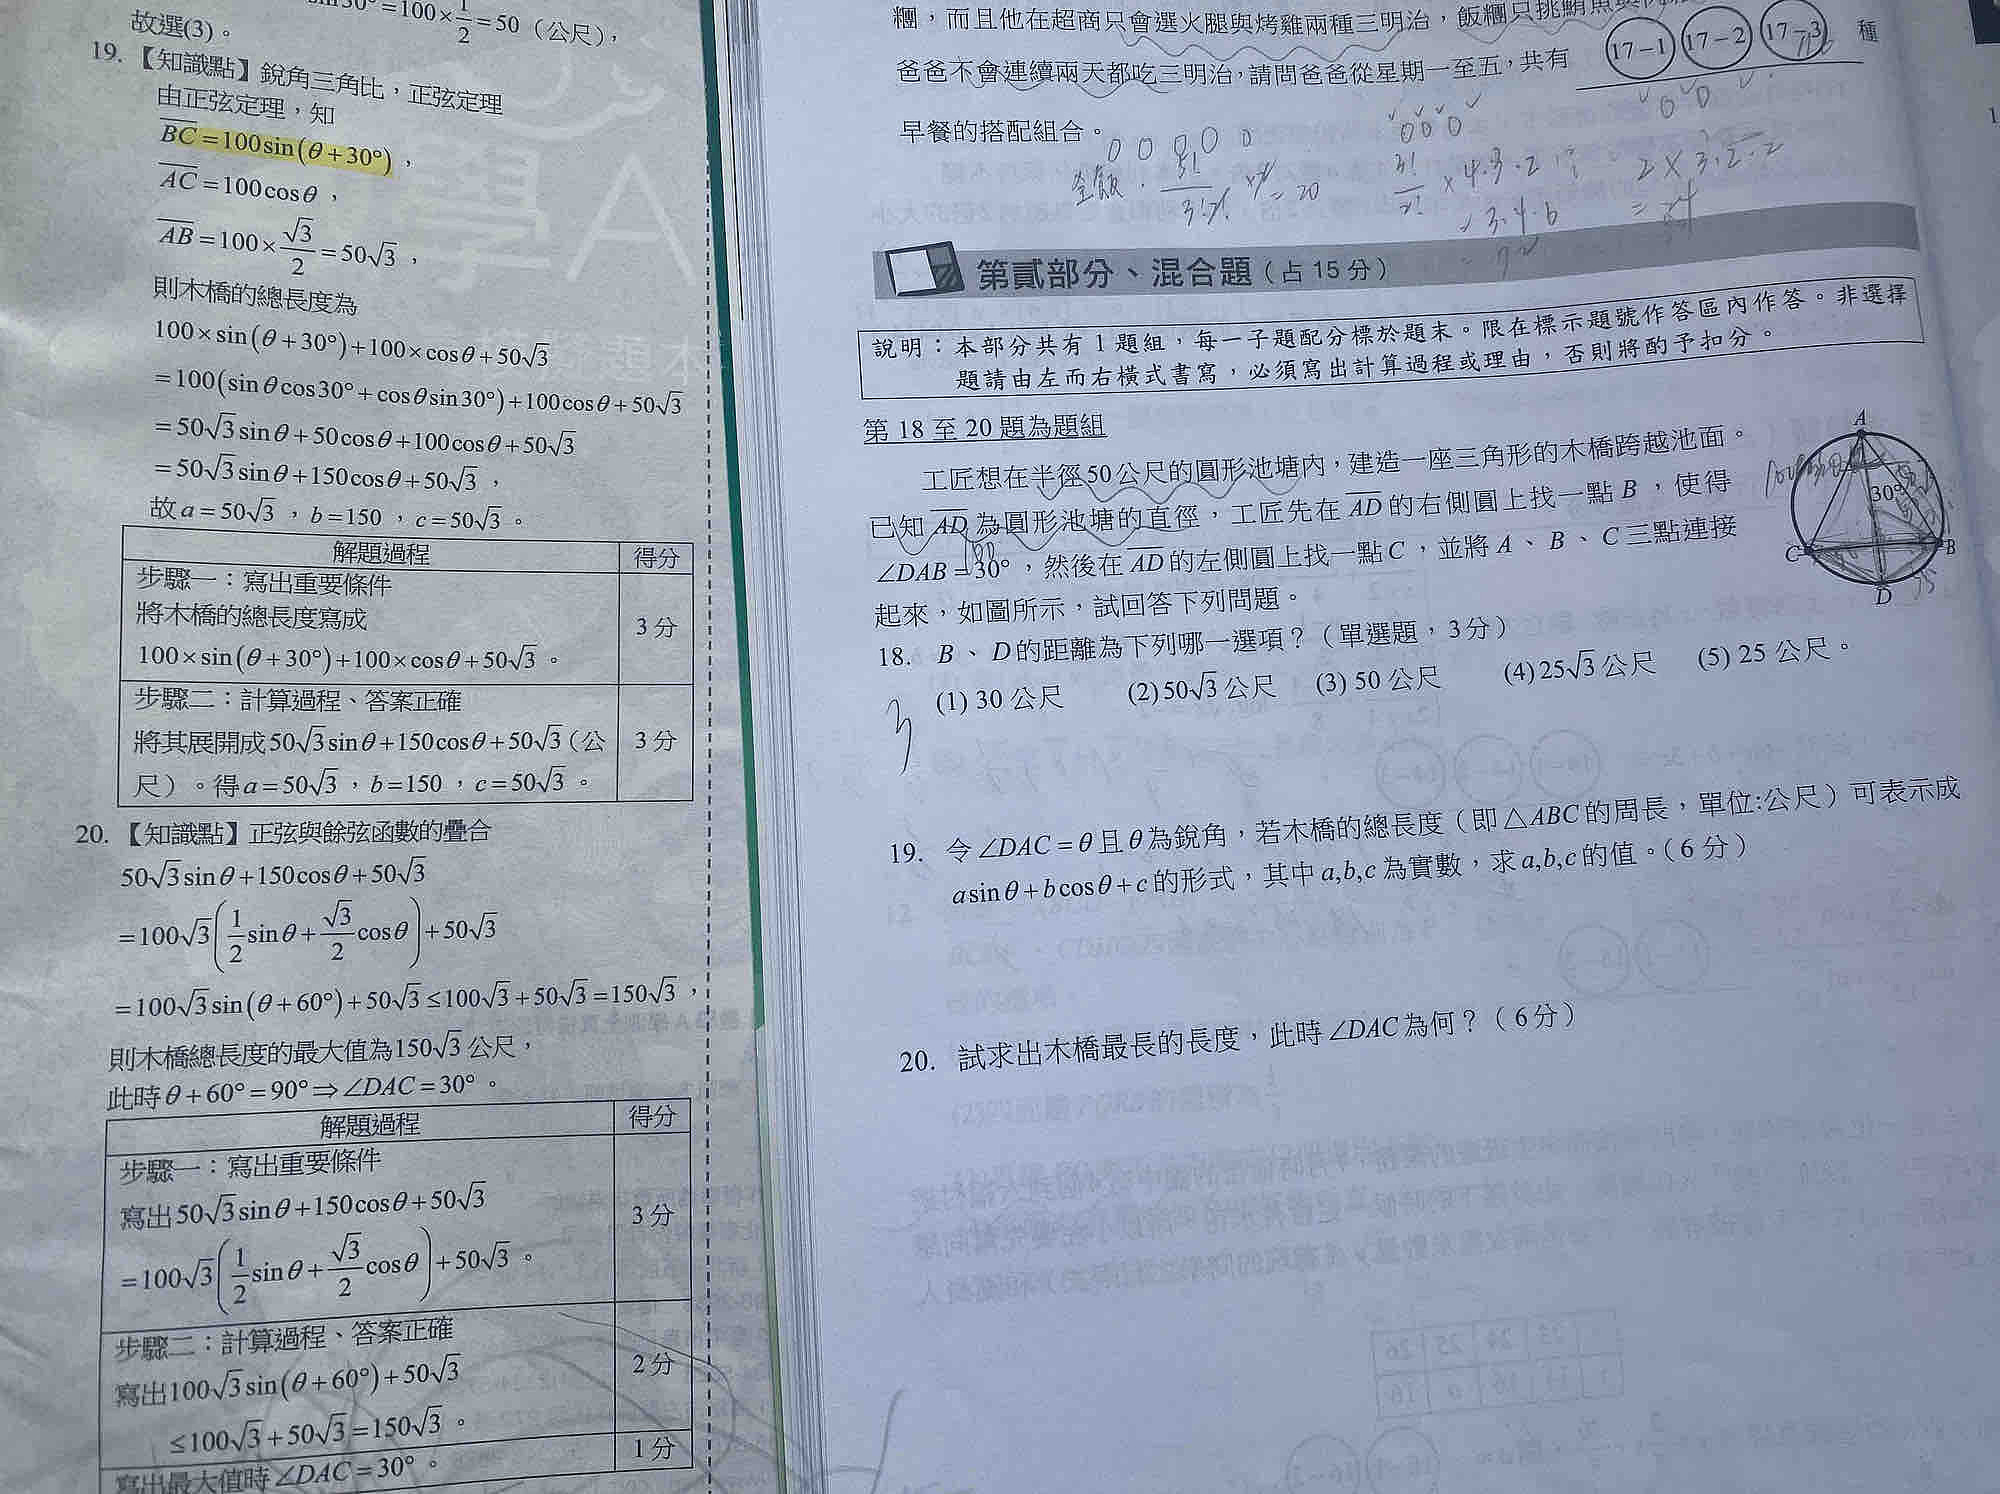 =100×1/2=50（公尺），
故選(3)。
19.【知識點】銳角三角比，正弦定理
由正弦定理，知
BC=100sin(θ+30°)，
AC=100cosθ，
AB=100×√3/2=50√3，
則木橋的總長度為
100×sin(θ+30°)+100×cosθ+50√3
=100(sinθcos30°+cosθsin30°)+100cosθ+50√3
=50√3sinθ+50cosθ+100cosθ+50√3
=50√3sinθ+150cosθ+50√3，
故a=50√3，b=150，c=50√3。
解題過程 得分
步驟一：寫出重要條件
將木橋的總長度寫成 3分
100×sin(θ+30°)+100×cosθ+50√3。
步驟二：計算過程、答案正確
將其展開成50√3sinθ+150cosθ+50√3（公 3分
尺）。得a=50√3，b=150，c=50√3。
20.【知識點】正弦與餘弦函數的疊合
50√3sinθ+150cosθ+50√3
=100√3(1/2sinθ+√3/2cosθ)+50√3
=100√3sin(θ+60°)+50√3≤100√3+50√3=150√3，
則木橋總長度的最大值為150√3公尺，
此時θ+60°=90°⇒∠DAC=30°。
解題過程 得分
步驟一：寫出重要條件
寫出50√3sinθ+150cosθ+50√3 3分
=100√3(1/2sinθ+√3/2cosθ)+50√3。
步驟二：計算過程、答案正確
寫出100√3sin(θ+60°)+50√3 2分
≤100√3+50√3=150√3。
寫出最大值時∠DAC=30°。 1分
糰，而且他在超商只會選火腿與烤雞兩種三明治，飯糰只挑鮪魚
爸爸不會連續兩天都吃三明治，請問爸爸從星期一至五，共有 17-1 17-2 17-3 種
早餐的搭配組合。
第貳部分、混合題（占15分）
說明：本部分共有1題組，每一子題配分標於題末。限在標示題號作答區內作答。非選擇
題請由左而右橫式書寫，必須寫出計算過程或理由，否則將酌予扣分。
第18至20題為題組
工匠想在半徑50公尺的圓形池塘內，建造一座三角形的木橋跨越池面。
已知AD為圓形池塘的直徑，工匠先在AD的右側圓上找一點B，使得
∠DAB=30°，然後在AD的左側圓上找一點C，並將A、B、C三點連接
起來，如圖所示，試回答下列問題。
A
30°
C
B
D
18. B、D的距離為下列哪一選項？（單選題，3分）
(1) 30公尺 (2)50√3公尺 (3) 50公尺 (4)25√3公尺 (5) 25公尺。
3
19. 令∠DAC=θ且θ為銳角，若木橋的總長度（即△ABC的周長，單位:公尺）可表示成
asinθ+bcosθ+c的形式，其中a,b,c為實數，求a,b,c的值。（6分）
20. 試求出木橋最長的長度，此時∠DAC為何？（6分）